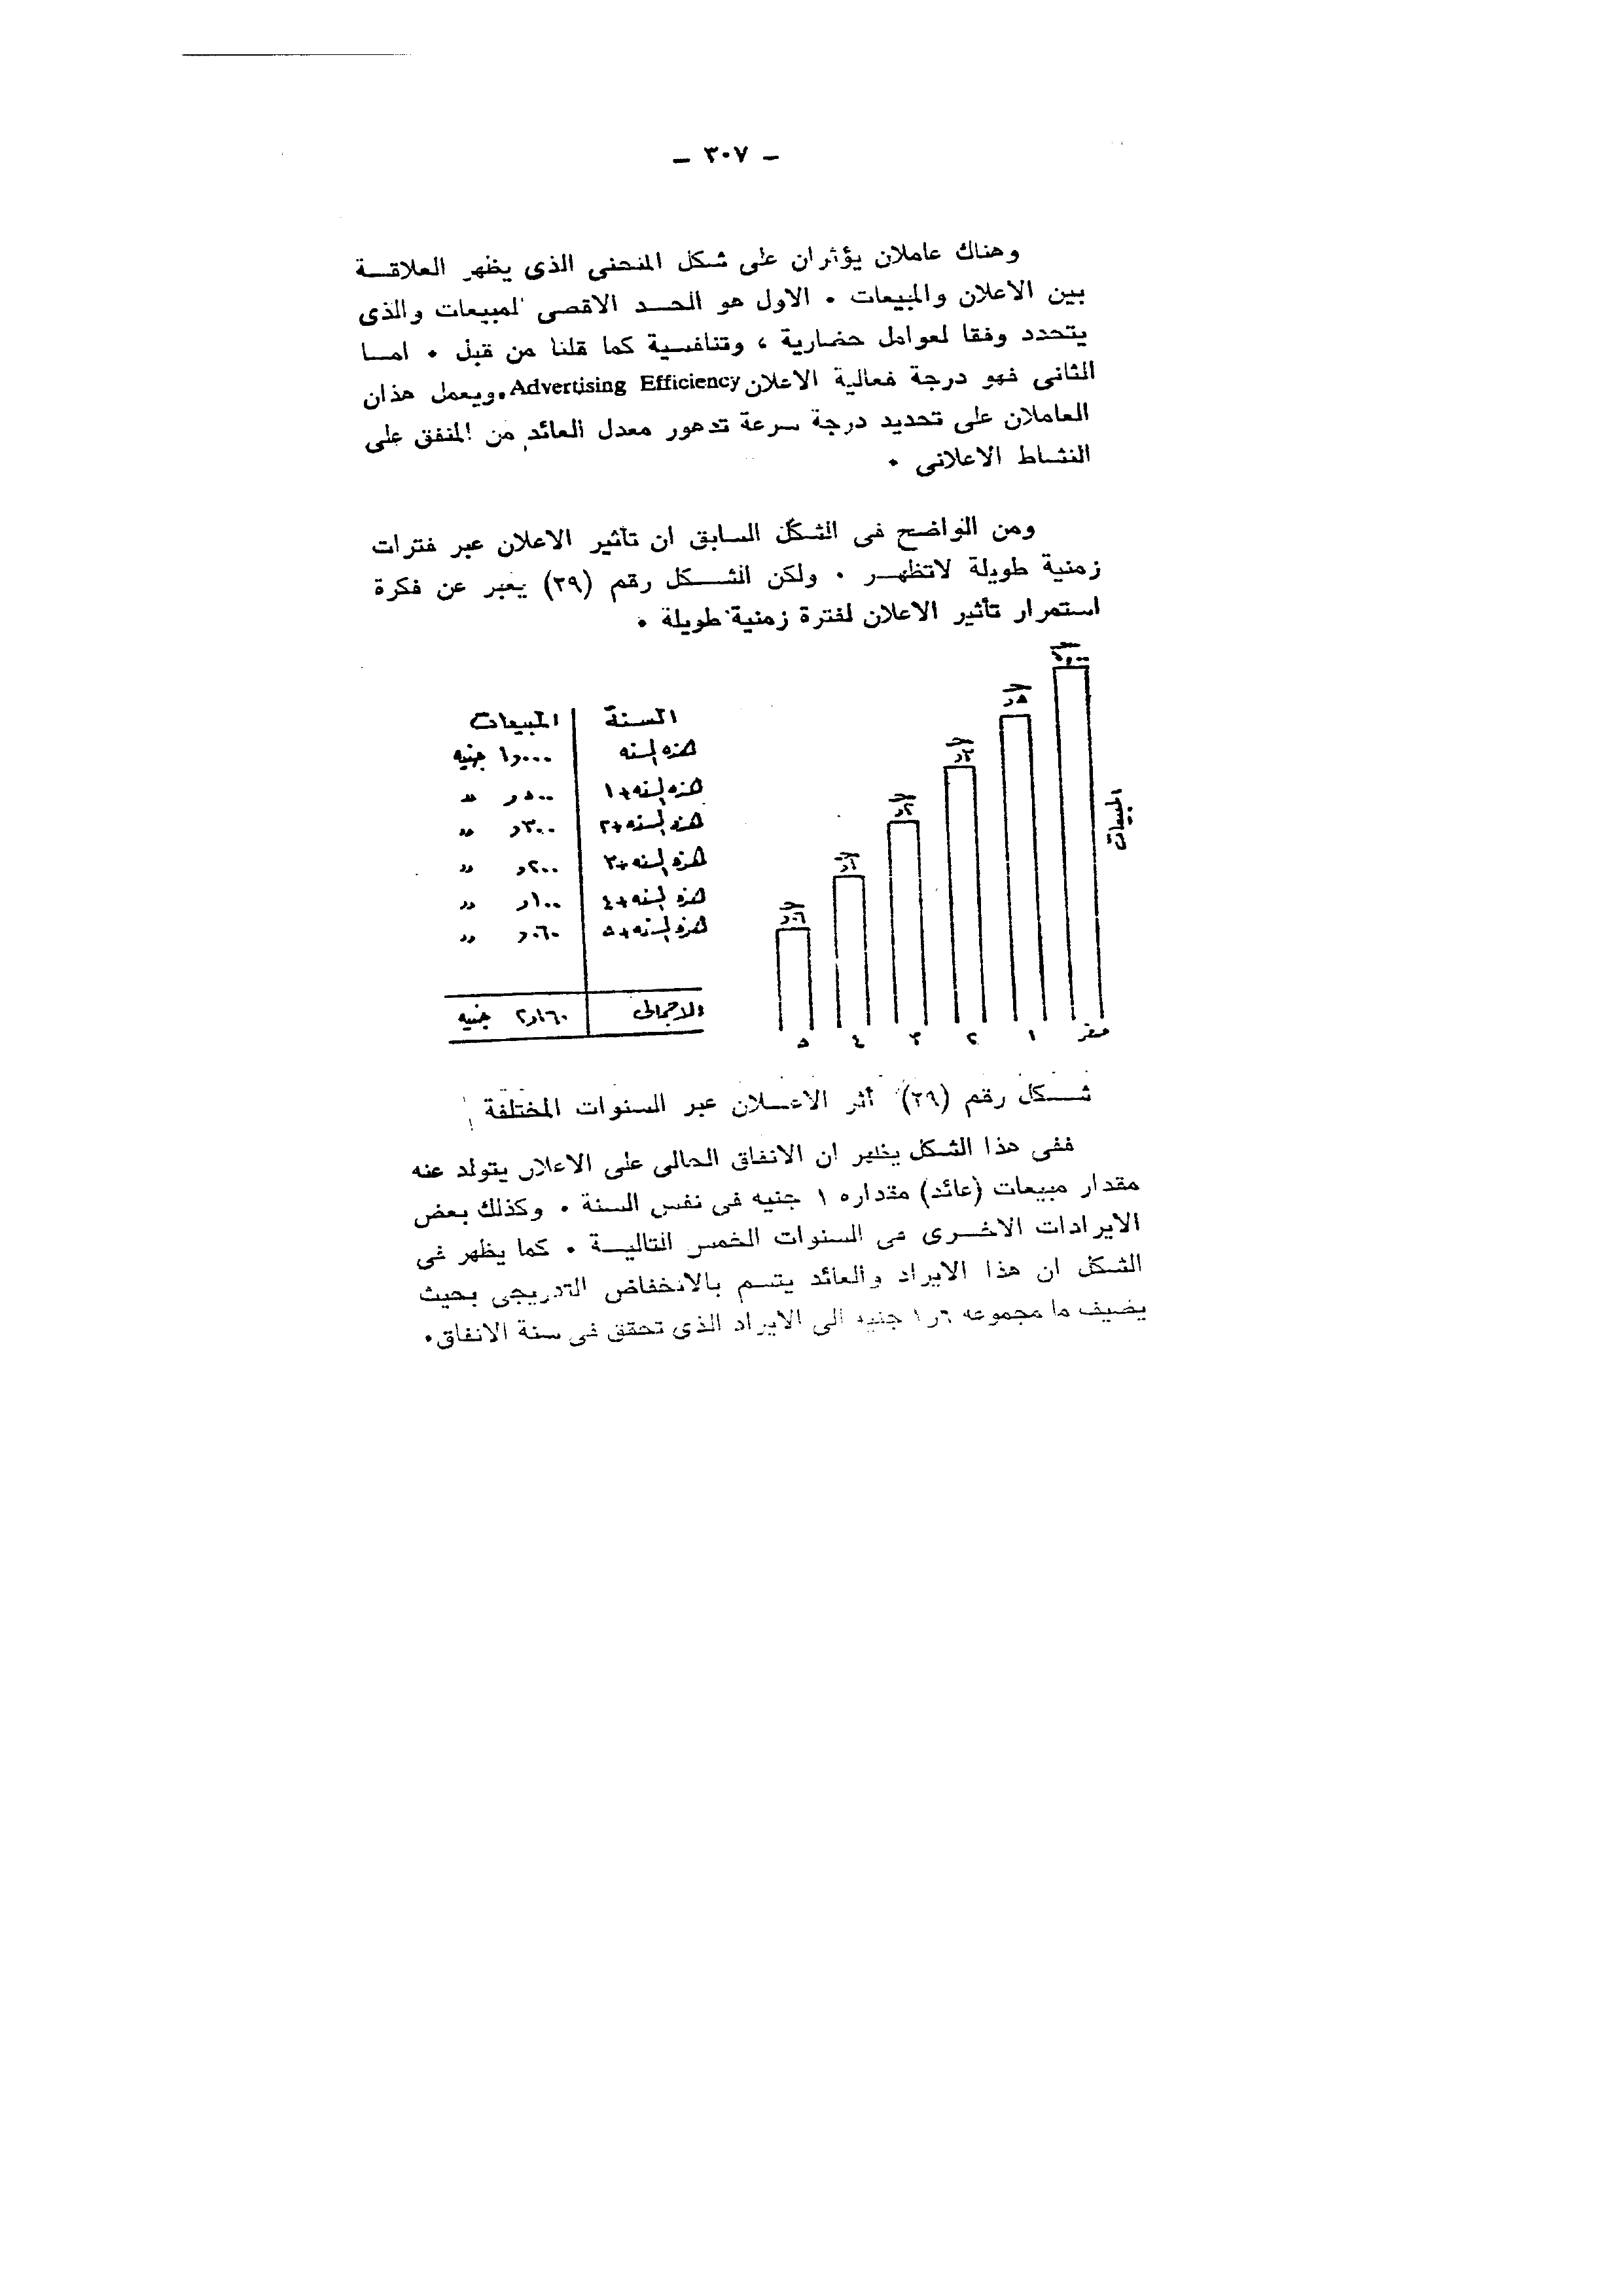 ـ ٣٠٧ ـ
وهناك عاملان يؤثران على شكل المنحنى الذى يظهر العلاقــة
بين الاعلان والمبيعات ٠ الاول هو الحــد الاقصى لمبيعات والذى
يتحدد وفقا لعوامل حضارية ، وتنافسية كما قلنا من قبل ٠ امــا
الثانى فهو درجة فعالية الاعلان Advertising Efficiency ٠ ويعمل هذان
العاملان على تحديد درجة سرعة تدهور معدل العائد من المنفق على
النشاط الاعلانى ٠
ومن الواضح فى الشكل السابق ان تأثير الاعلان عبر فترات
زمنية طويلة لاتظهــر ٠ ولكن الشــكل رقم (٢٩) يعبر عن فكرة
استمرار تأثير الاعلان لفترة زمنية طويلة ٠
ح
٥ر
ح
٣ر
ح
٢ر
ح
١ر
ح
٠٦ر
المبيعات
صفر ١ ٢ ٣ ٤ ٥
السنة المبيعات
هذه السنه ١٫٠٠٠ جنيه
هذه السنه + ١ ٥٠٠ر "
هذه السنه + ٢ ٣٠٠ر "
هذه السنه + ٣ ٢٠٠ر "
هذه السنه + ٤ ١٠٠ر "
هذه السنه + ٥ ٠٦٠ر "
الاجمالى ١٦٠ر٢ جنيه
شــكل رقم (٢٩) أثر الاعــلان عبر السنوات المختلفة
ففى هذا الشكل يظهر ان الانفاق الحالى على الاعلان يتولد عنه
مقدار مبيعات (عائد) مقداره ١ جنيه فى نفس السنة ٠ وكذلك بعض
الايرادات الاخــرى فى السنوات الخمس التاليــة ٠ كما يظهر فى
الشكل ان هذا الايراد والعائد يتسم بالانخفاض التدريجى بحيث
يضيف ما مجموعه ٦ر١ جنيه الى الايراد الذى تحقق فى سنة الانفاق ٠